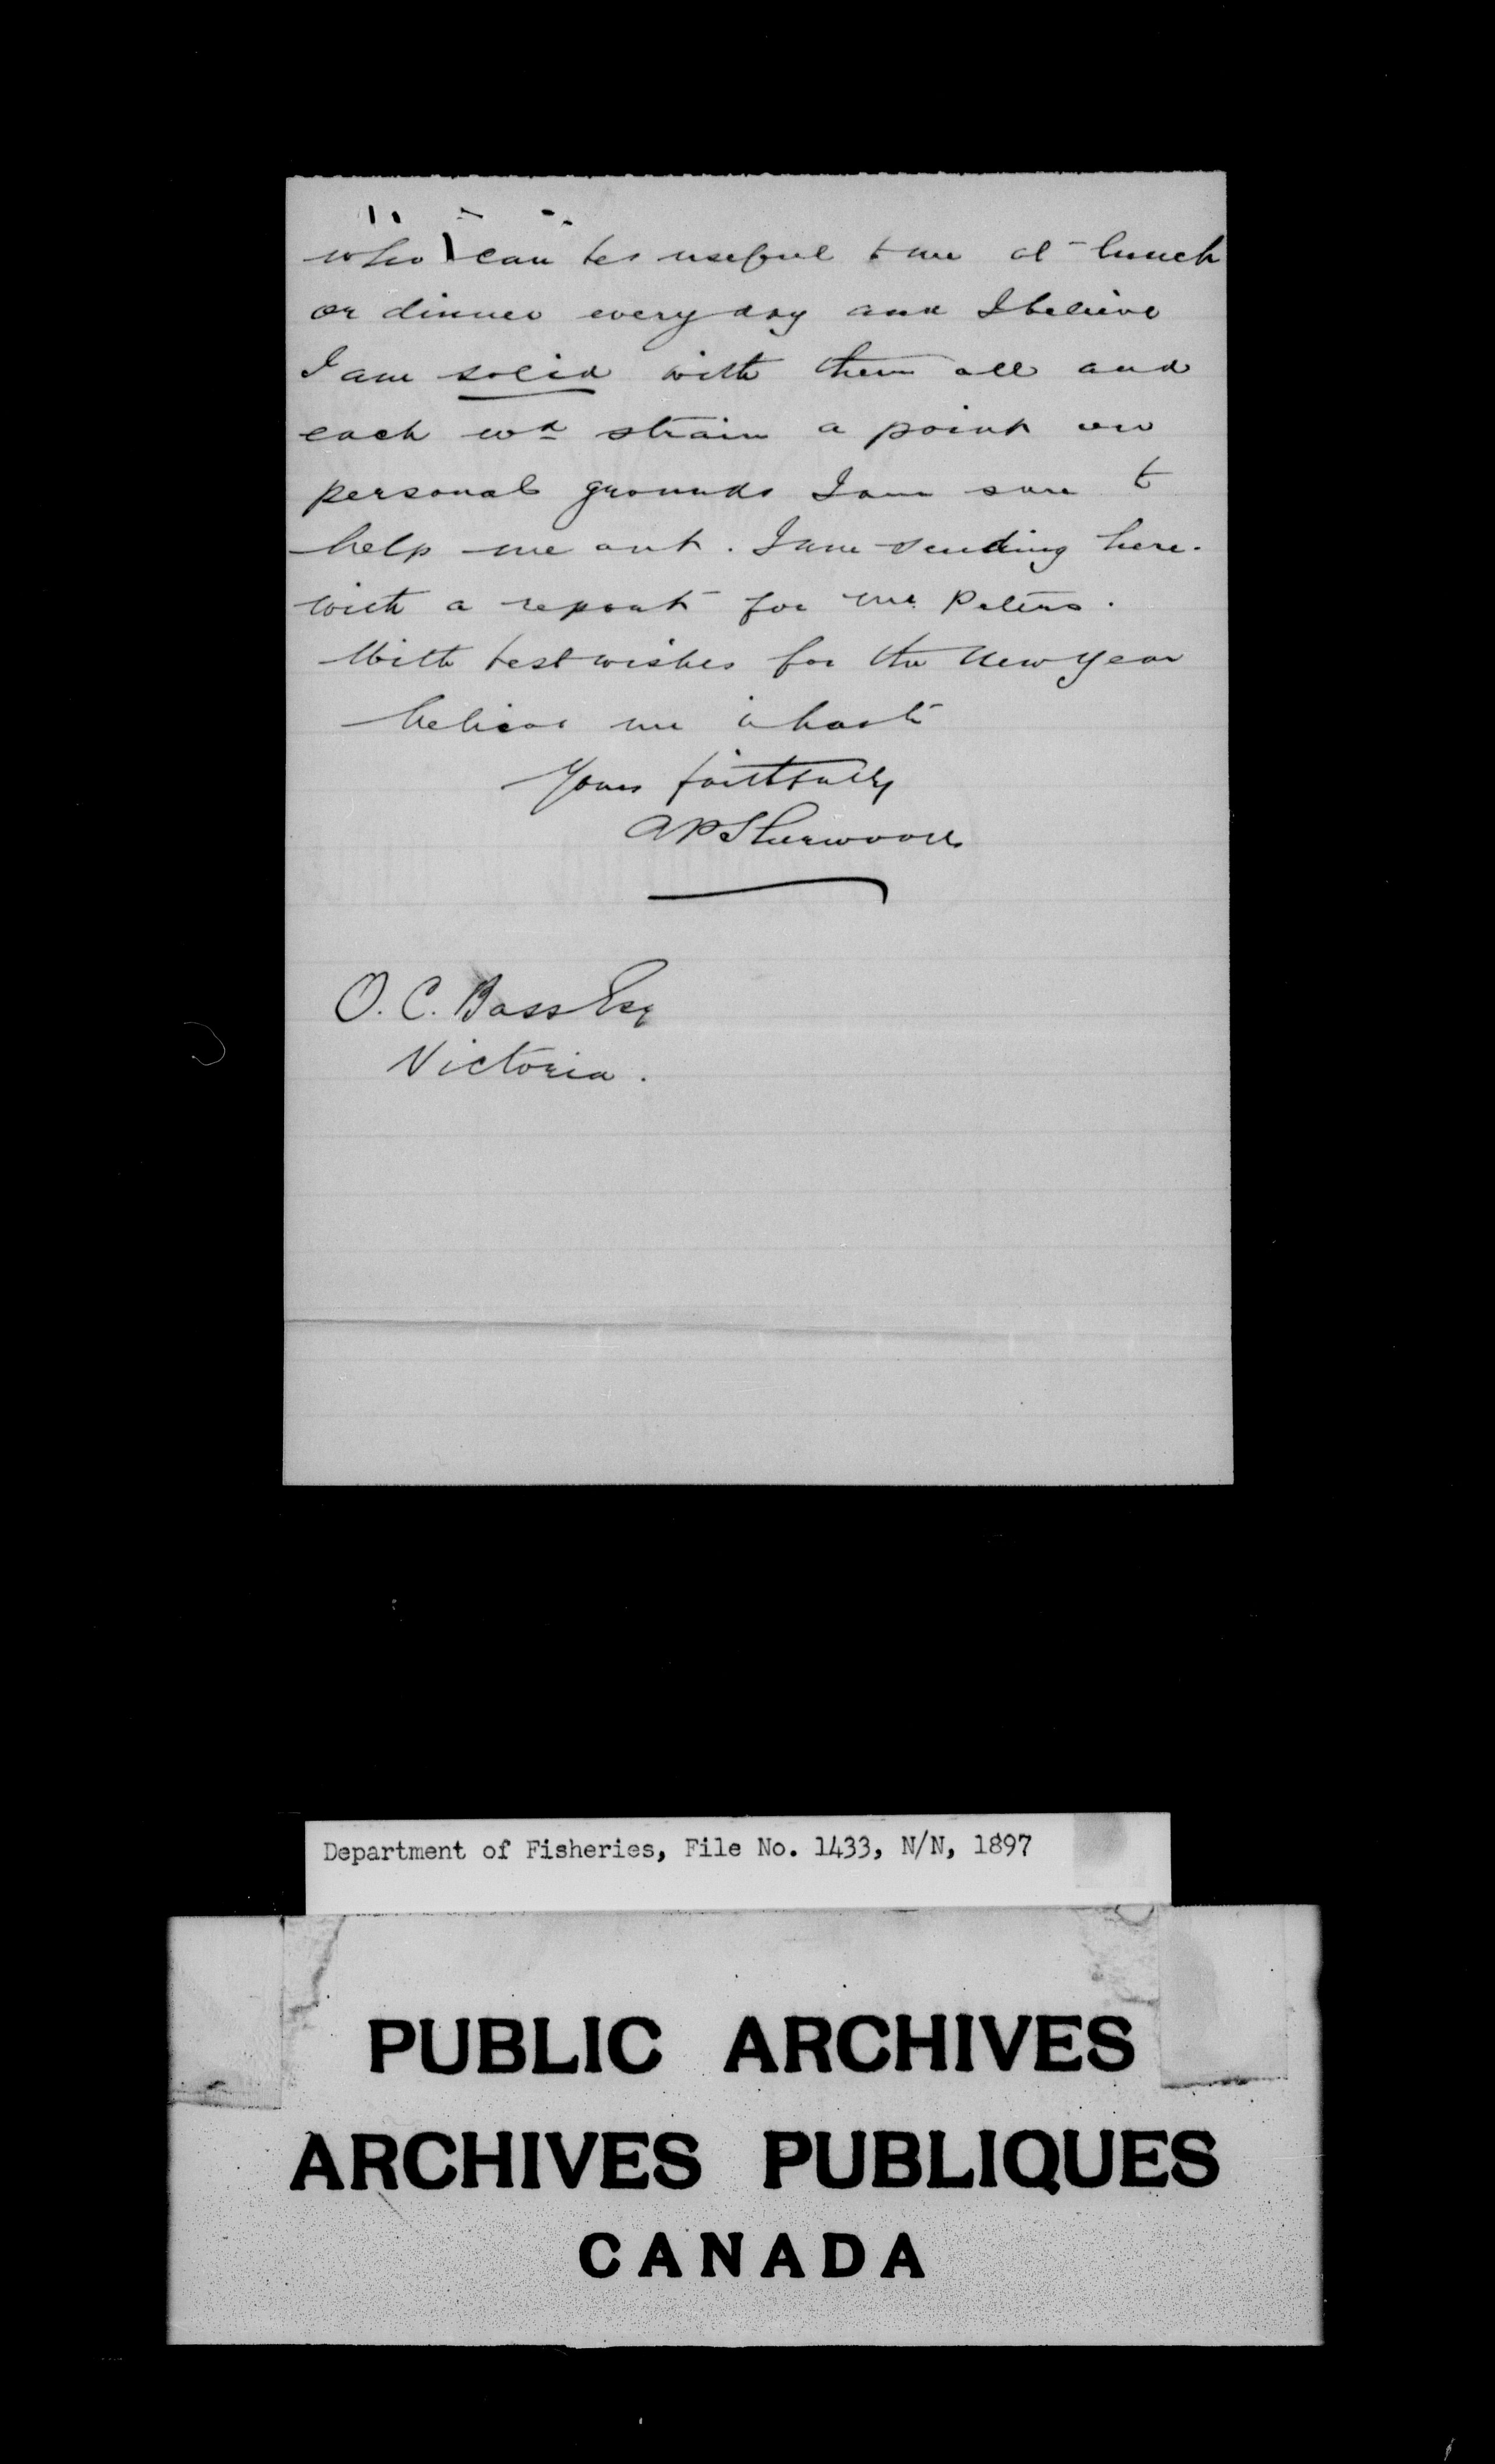 who can be useful to me at lunch
or dinner every day and I believe
I am solid with them all and
each wd strain a point on
personal grounds I am sure to
help me out. I am sending here-
with a report for Mr. Peters.
With best wishes for the New Year
believe me in haste
Yours faithfully
A P Sherwood
O. C. Bass Esq
Victoria.
Department of Fisheries, File No. 1433, N/N, 1897
PUBLIC ARCHIVES
ARCHIVES PUBLIQUES
CANADA